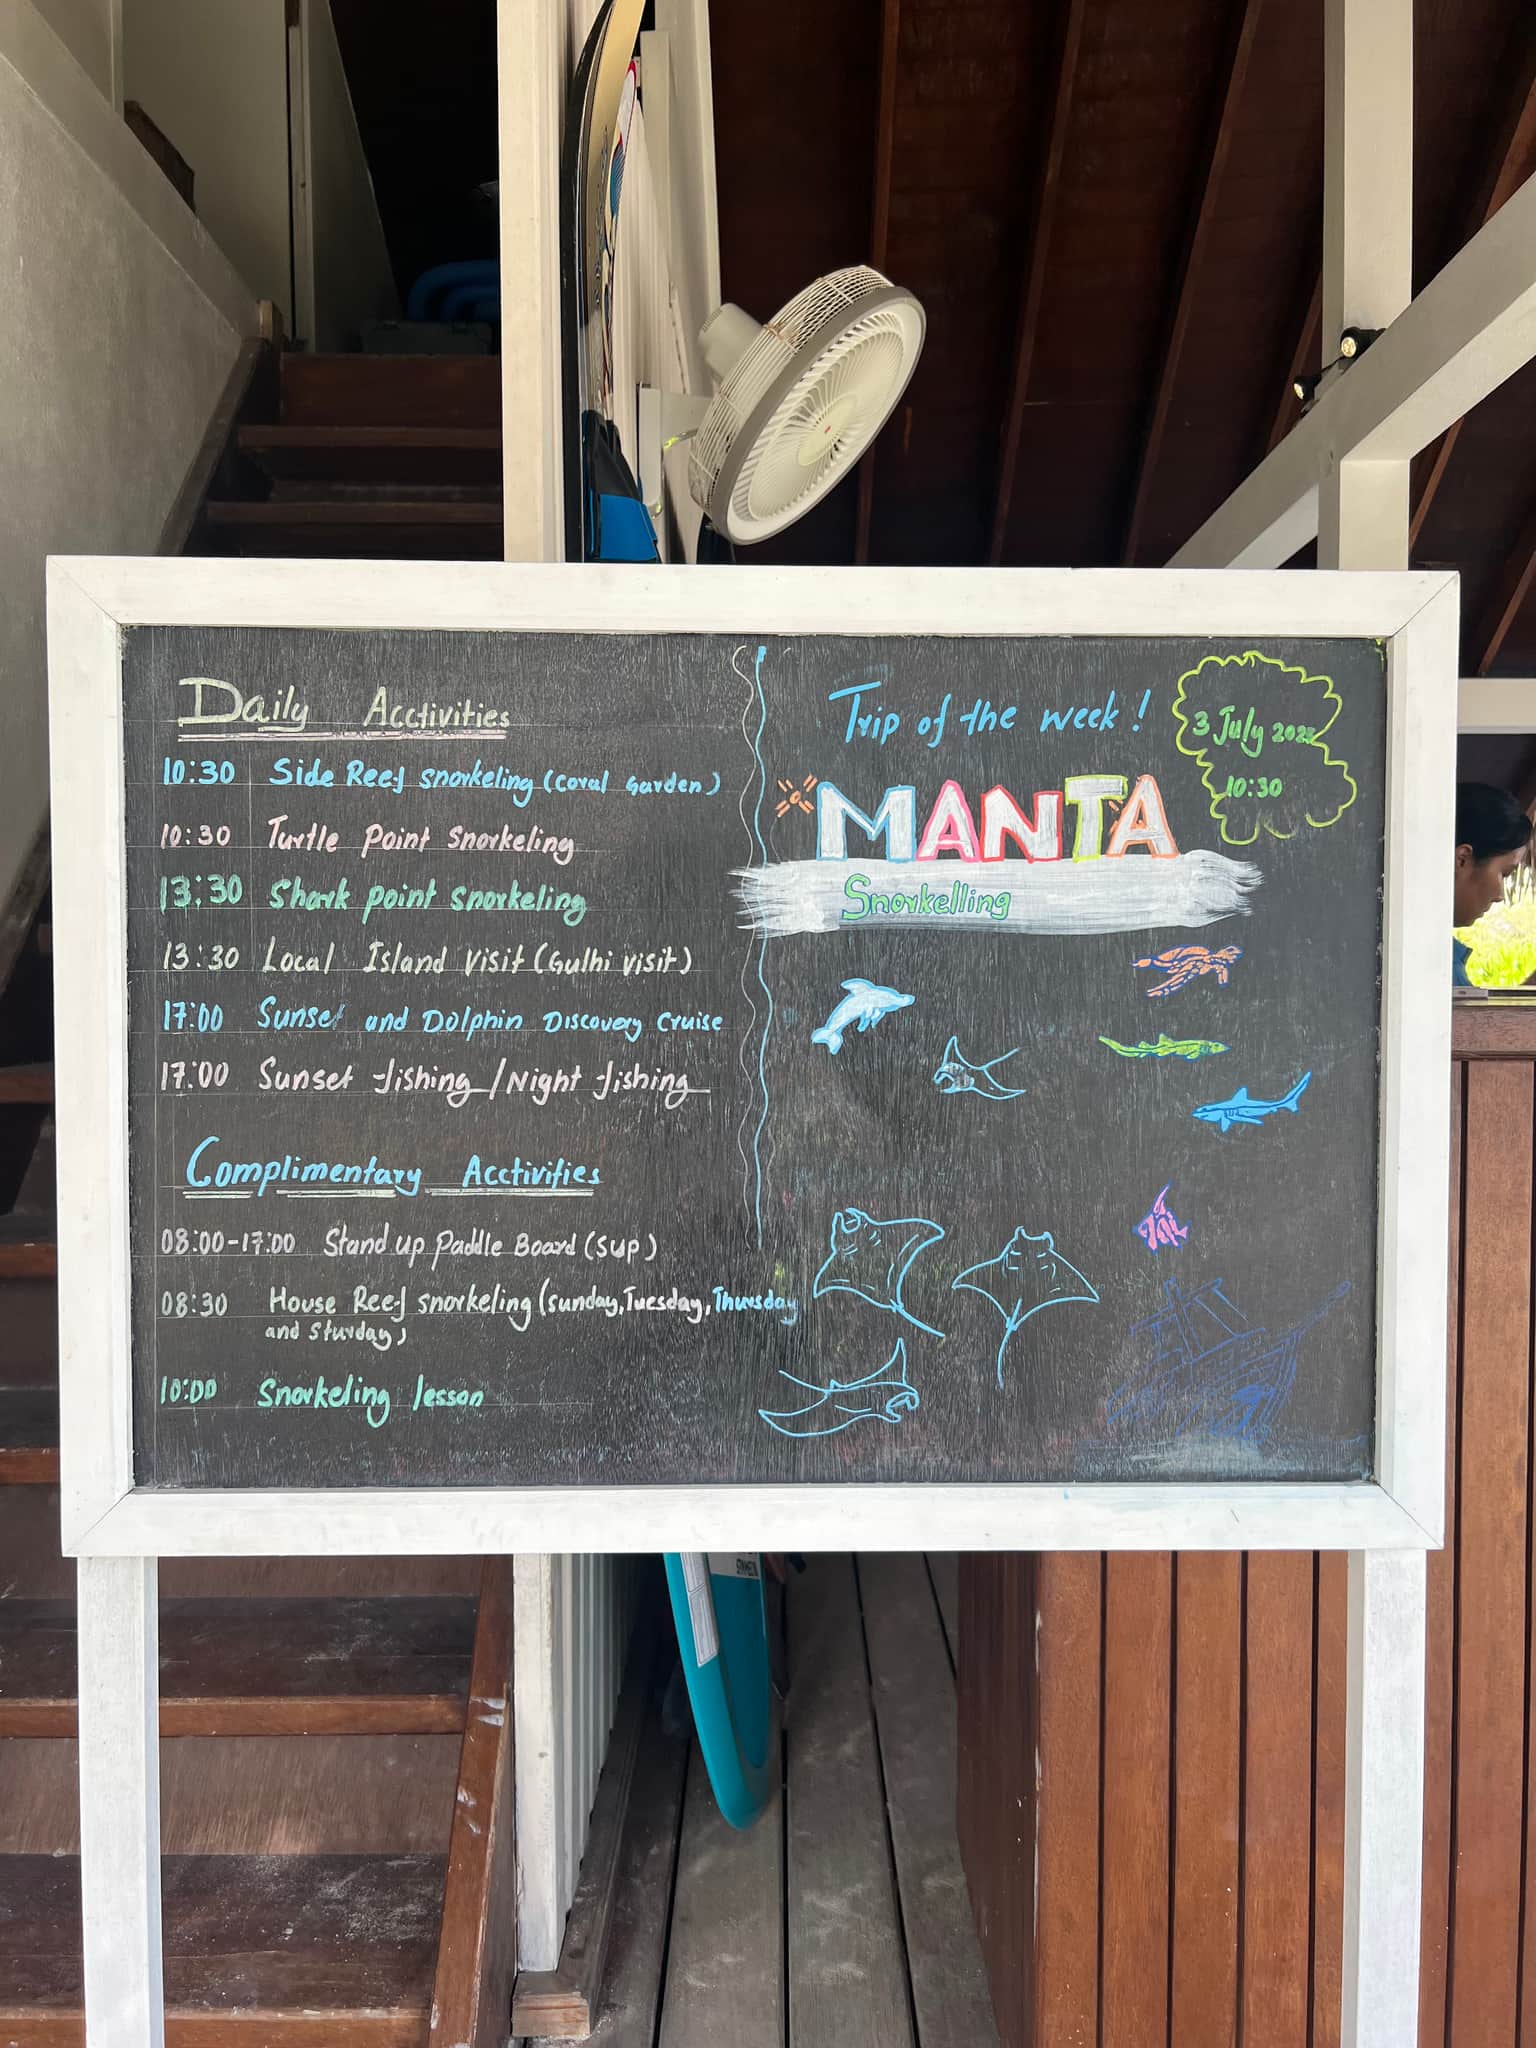 Daily Acctivities
10:30 Side Reef snorkeling (Coral Garden)
10:30 Turtle point snorkeling
13:30 Shark point snorkeling
13:30 Local Island visit (Gulhi visit)
17:00 Sunset and Dolphin Discovery Cruise
17:00 Sunset fishing / Night fishing
Complimentary Acctivities
08:00-17:00 Stand up Paddle Board (SUP)
08:30 House Reef snorkeling (Sunday, Tuesday, Thursday
and Sturday)
10:00 Snorkeling lesson
Trip of the week!
3 July
10:30
MANTA
Snorkelling